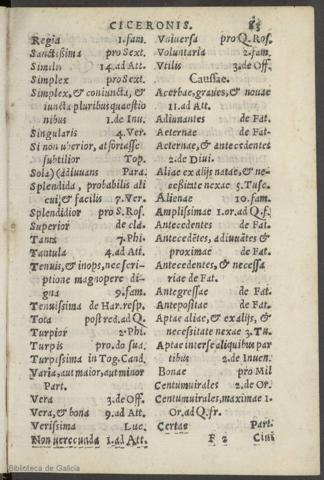 CICERONIS. 83
Regia 1.fam.
Sanctissima pro Sext.
Similis 14.ad Att.
Simplex pro Sext.
Simplex, & coniuncta, &
iuncta pluribus quæstio
nibus 1.de Inu.
Singularis 4.Ver.
Si non uberior, at fortasse
subtilior Top.
Sola) (adiuuans Para.
Splendida, probabilis ali
cui, & facilis 7.Ver.
Splendidior pro S.Ros.
Superior de cla.
Tanta 7.Phi.
Tantula 4.ad Att.
Tenuis, & inops, nec scri-
ptione magnopere di-
gna 9.fam.
Tenuissima de Har.resp.
Tota post red.ad Q.
Turpior 2.Phi.
Turpis pro.do sua.
Turpissima in Tog.Cand.
Varia, aut maior, aut minor
Part.
Vera 3.de Off.
Vera, & bona 9.ad Att.
Verissima Luc.
Non uerecunda 1.ad Att.
Vniuersa pro Q.Ros.
Voluntaria 2.fam.
Vtilis 3.de Off.
Caussae.
Acerbae, graues, & nouae
11.ad Att.
Adiunantes de Fat.
Aeternae de Fat.
Aeternae, & antecedentes
2.de Diui.
Aliae ex alijs natae, & ne-
cessitate nexae 5.Tusc.
Alienae 10.fam.
Amplissimae 1.or.ad Q.f.
Antecedentes de Fat.
Antecedētes, adiuuātes &
proximae de Fat.
Antecedentes, & necessa
riae de Fat.
Antegressae de Fat.
Antepositae de Fat.
Aptae aliae, & ex alijs, &
necessitate nexae 3.Tu.
Aptae inter se aliquibus par
tibus 2.de Inuen.
Bonae pro Mil
Centumuirales 2.de Or.
Centumuirales, maximae 1.
Or.ad Q.fr.
Certae Part.
F 2 Ciui
Biblioteca de Galicia